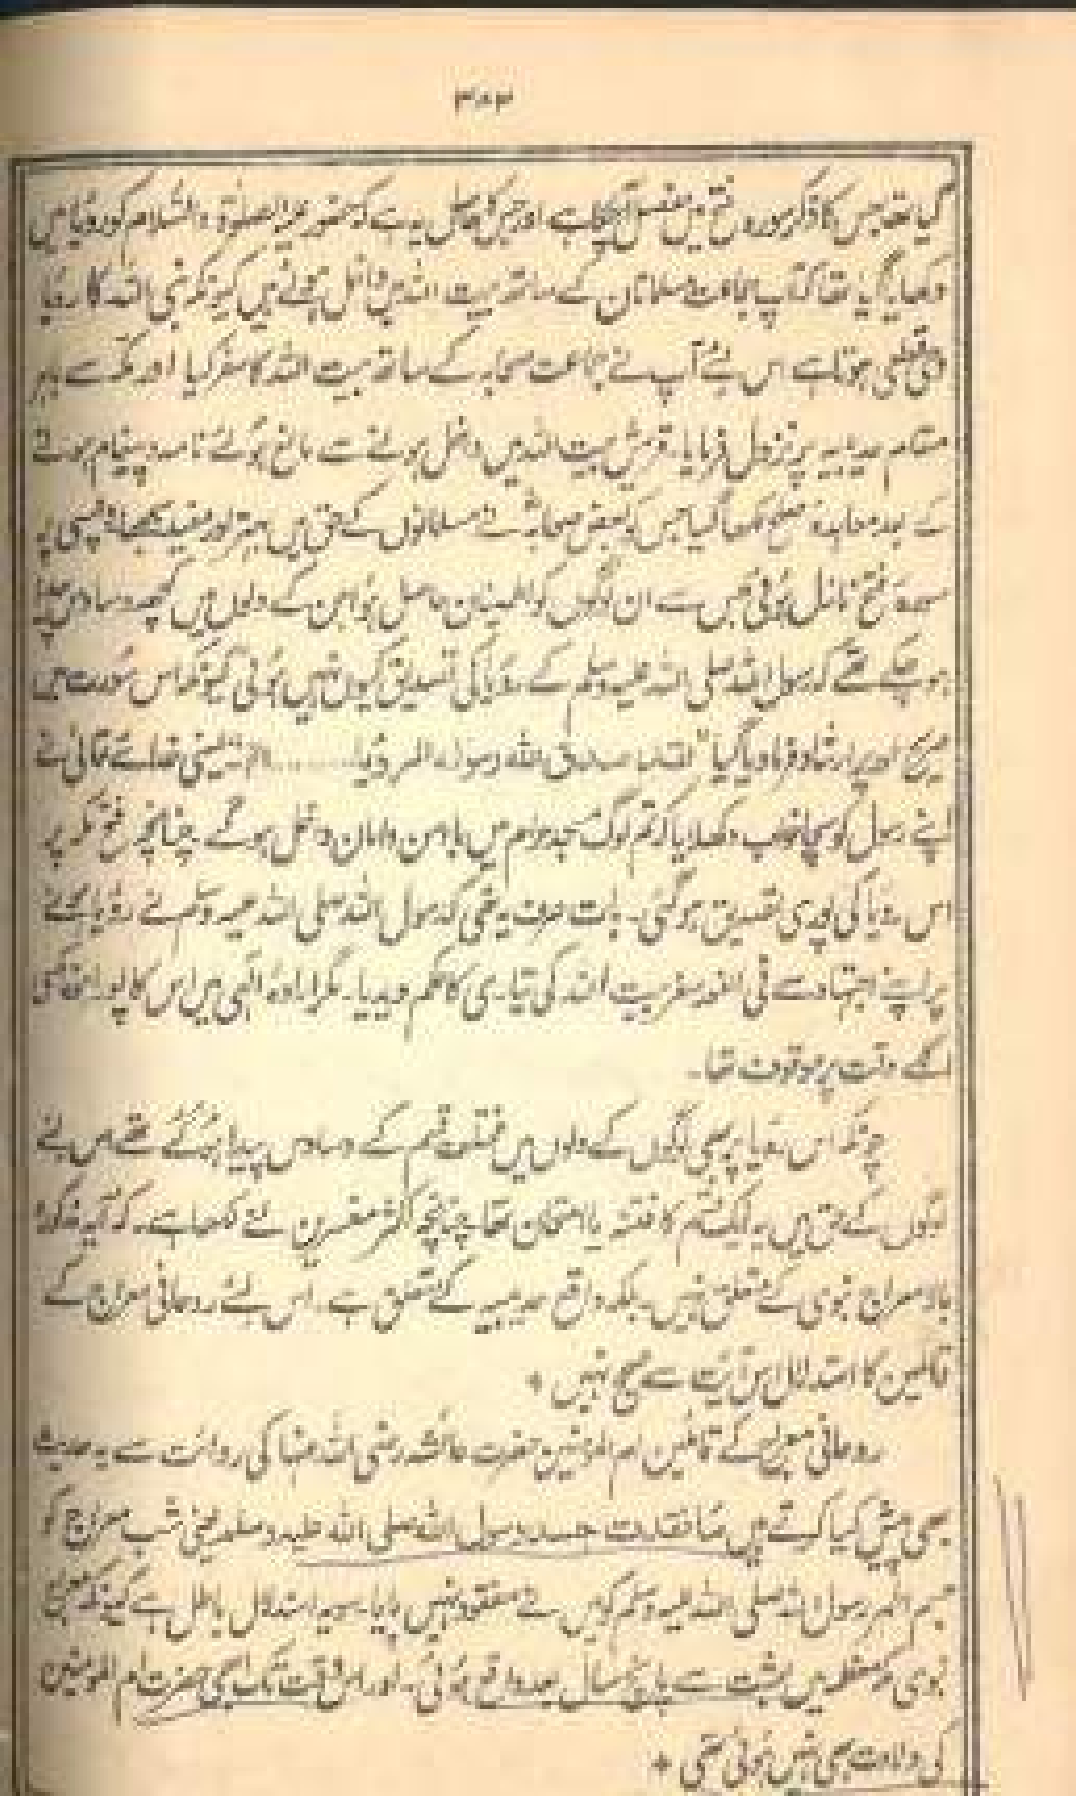 ۳۸۳
گیا تھا جس کا ذکر سورہ فتح میں مفصل آچکا ہے اور جس کا حاصل یہ ہے کہ حضور علیہ الصلوٰۃ والسّلام کو رؤیا میں
دکھایا گیا تھا کہ آپ باجماعت مسلمانان کے ساتھ بیت اللہ میں داخل ہوئے ہیں کیونکہ نبی اللہ کا رویا
قطعی ہوتا ہے اس لئے آپ نے جماعت صحابہ کے ساتھ بیت اللہ کا سفر کیا اور مکہ سے باہر
مقام حدیبیہ پر نزول فرمایا۔ قریش بیت اللہ میں داخل ہونے سے مانع ہوئے نامہ و پیغام ہونے
کے بعد معاہدہ صلح لکھا گیا جس کو بعض صحابہؓ نے مسلمانوں کے حق میں بہتر اور مفید نہ سمجھا اسی پر
سورہ فتح نازل ہوئی جس سے ان لوگوں کو اطمینان حاصل ہوا جن کے دلوں میں کچھ وساوس پیدا
ہو چکے تھے کہ رسول اللہ صلی اللہ علیہ وسلم کے رؤیا کی تصدیق کیوں نہیں ہوئی کیونکہ اس سورت میں
ارشاد فرما دیا گیا "لقد صدق اللہ رسولہ الرؤیا......... الخ" یعنی خدائے تعالیٰ نے
اپنے رسول کو سچا خواب دکھلایا کہ تم لوگ مسجد حرام میں با امن و امان داخل ہوگے چنانچہ فتح مکہ پر
اس رؤیا کی پوری تصدیق ہوگئی۔ بات صرف یہ تھی کہ رسول اللہ صلی اللہ علیہ وسلم نے رؤیا ہونے
پر اپنے اجتہاد سے فی الفور سفر بیت اللہ کی تیاری کا حکم دیدیا۔ مگر ارادہ الٰہی میں اس کا پورا ہونا
اگلے وقت پر موقوف تھا۔
چونکہ اس رؤیا پر بھی لوگوں کے دلوں میں مختلف قسم کے وساوس پیدا ہوگئے تھے اس لئے
لوگوں کے حق میں یہ ایک قسم کا فتنہ یا امتحان تھا چنانچہ اکثر مفسرین نے لکھا ہے۔ کہ آیہ مذکورہ
بالا معراج نبوی کے متعلق نہیں۔ بلکہ واقع حدیبیہ کے متعلق ہے۔ اس لئے روحانی معراج کے
قائلین کا استدلال اس آیت سے صحیح نہیں ٭
روحانی معراج کے قائلین ام المؤمنین حضرت عائشہ رضی اللہ عنہا کی روائت سے یہ حدیث
بھی پیش کیا کرتے ہیں مَا فقدت جسد رسول اللہ صلی اللہ علیہ وسلم یعنی شب معراج کو
جسم اطہر رسول اللہ صلی اللہ علیہ وسلم کو میں نے مفقود نہیں پایا۔ سو یہ استدلال باطل ہے کیونکہ معراج
نبوی مکہ معظمہ میں بعثت سے پانچ سال بعد واقع ہوئی۔ اور اس وقت تک ابھی حضرت ام المومنین
کی ولادت بھی نہیں ہوئی تھی ٭